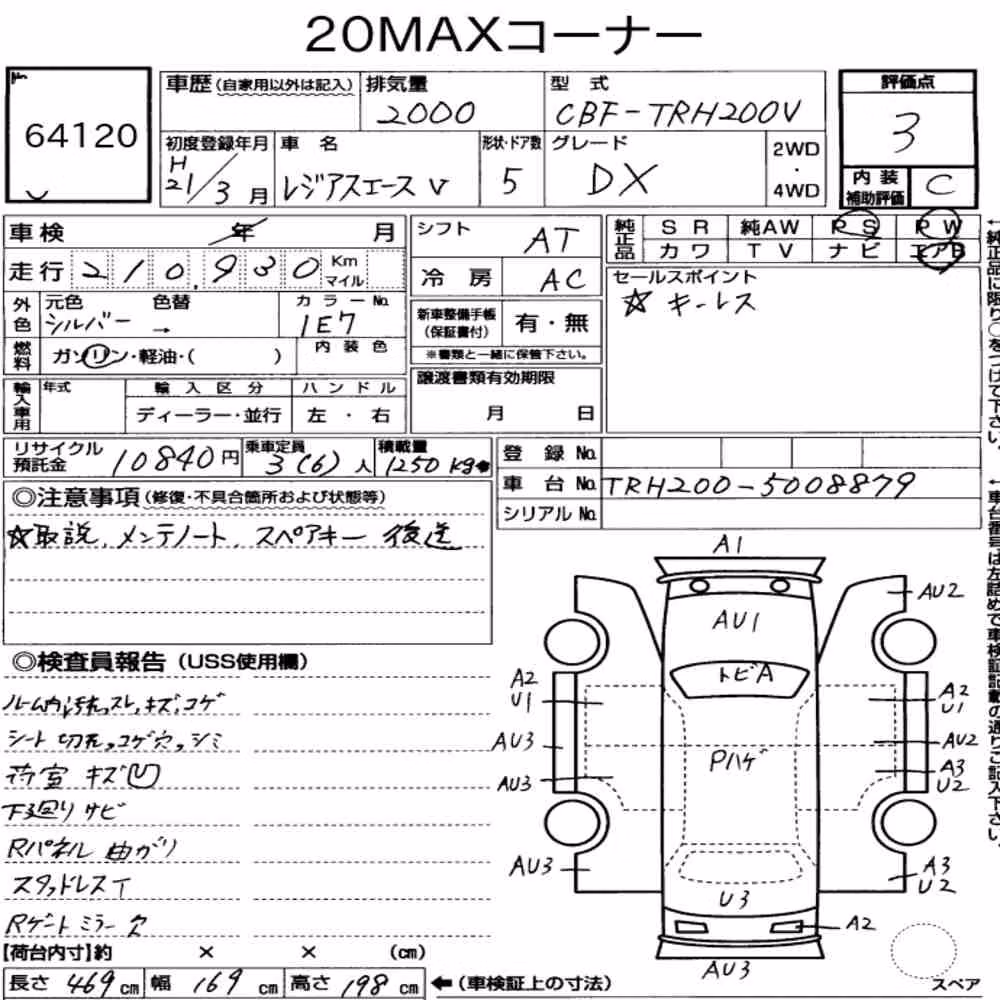 20MAXコーナー
No
64120
車歴(自家用以外は記入) 排気量 2000 型式 CBF-TRH200V
初度登録年月 H21/3月 車名 レジアスエースV 形状・ドア数 5 グレード DX 2WD・4WD
評価点 3
内装補助評価 C
車検 年 月
走行 210,930 Km マイル
外色 元色 シルバー → 色替 カラーNo. 1E7
燃料 ガソリン・軽油・( ) 内装色
輸入車用 年式 輸入区分 ディーラー・並行 ハンドル 左・右
シフト AT
冷房 AC
新車整備手帳(保証書付) 有・無
※書類と一緒に保管下さい。
譲渡書類有効期限
月 日
純正品 SR 純AW PS PW
カワ TV ナビ エアB
セールスポイント
☆ キーレス
←純正品に限り○をつけて下さい。
リサイクル預託金 10840円 乗車定員 3(6)人 積載量 1250kg
登録No.
車台No. TRH200-5008879
シリアルNo.
←車台番号は左詰めで車検証記載の通りご記入下さい。
◎注意事項(修復・不具合箇所および状態等)
☆取説、メンテノート、スペアキー 後送
◎検査員報告(USS使用欄)
ルーム内汚れ、スレ、キズ、コゲ
シート 切れ、コゲ穴、シミ
荷室 キズ凹
下廻り サビ
Rパネル 曲がり
スタッドレスT
Rゲートミラー 欠
【荷台内寸】約 × × (cm)
長さ 469cm 幅 169cm 高さ 198cm ←(車検証上の寸法)
A1
AU1
AU2
トビA
A2
U1
A2
U1
AU3
AU2
Pハゲ
AU3
A3
U2
AU3
A3
U2
U3
A2
AU3
スペア